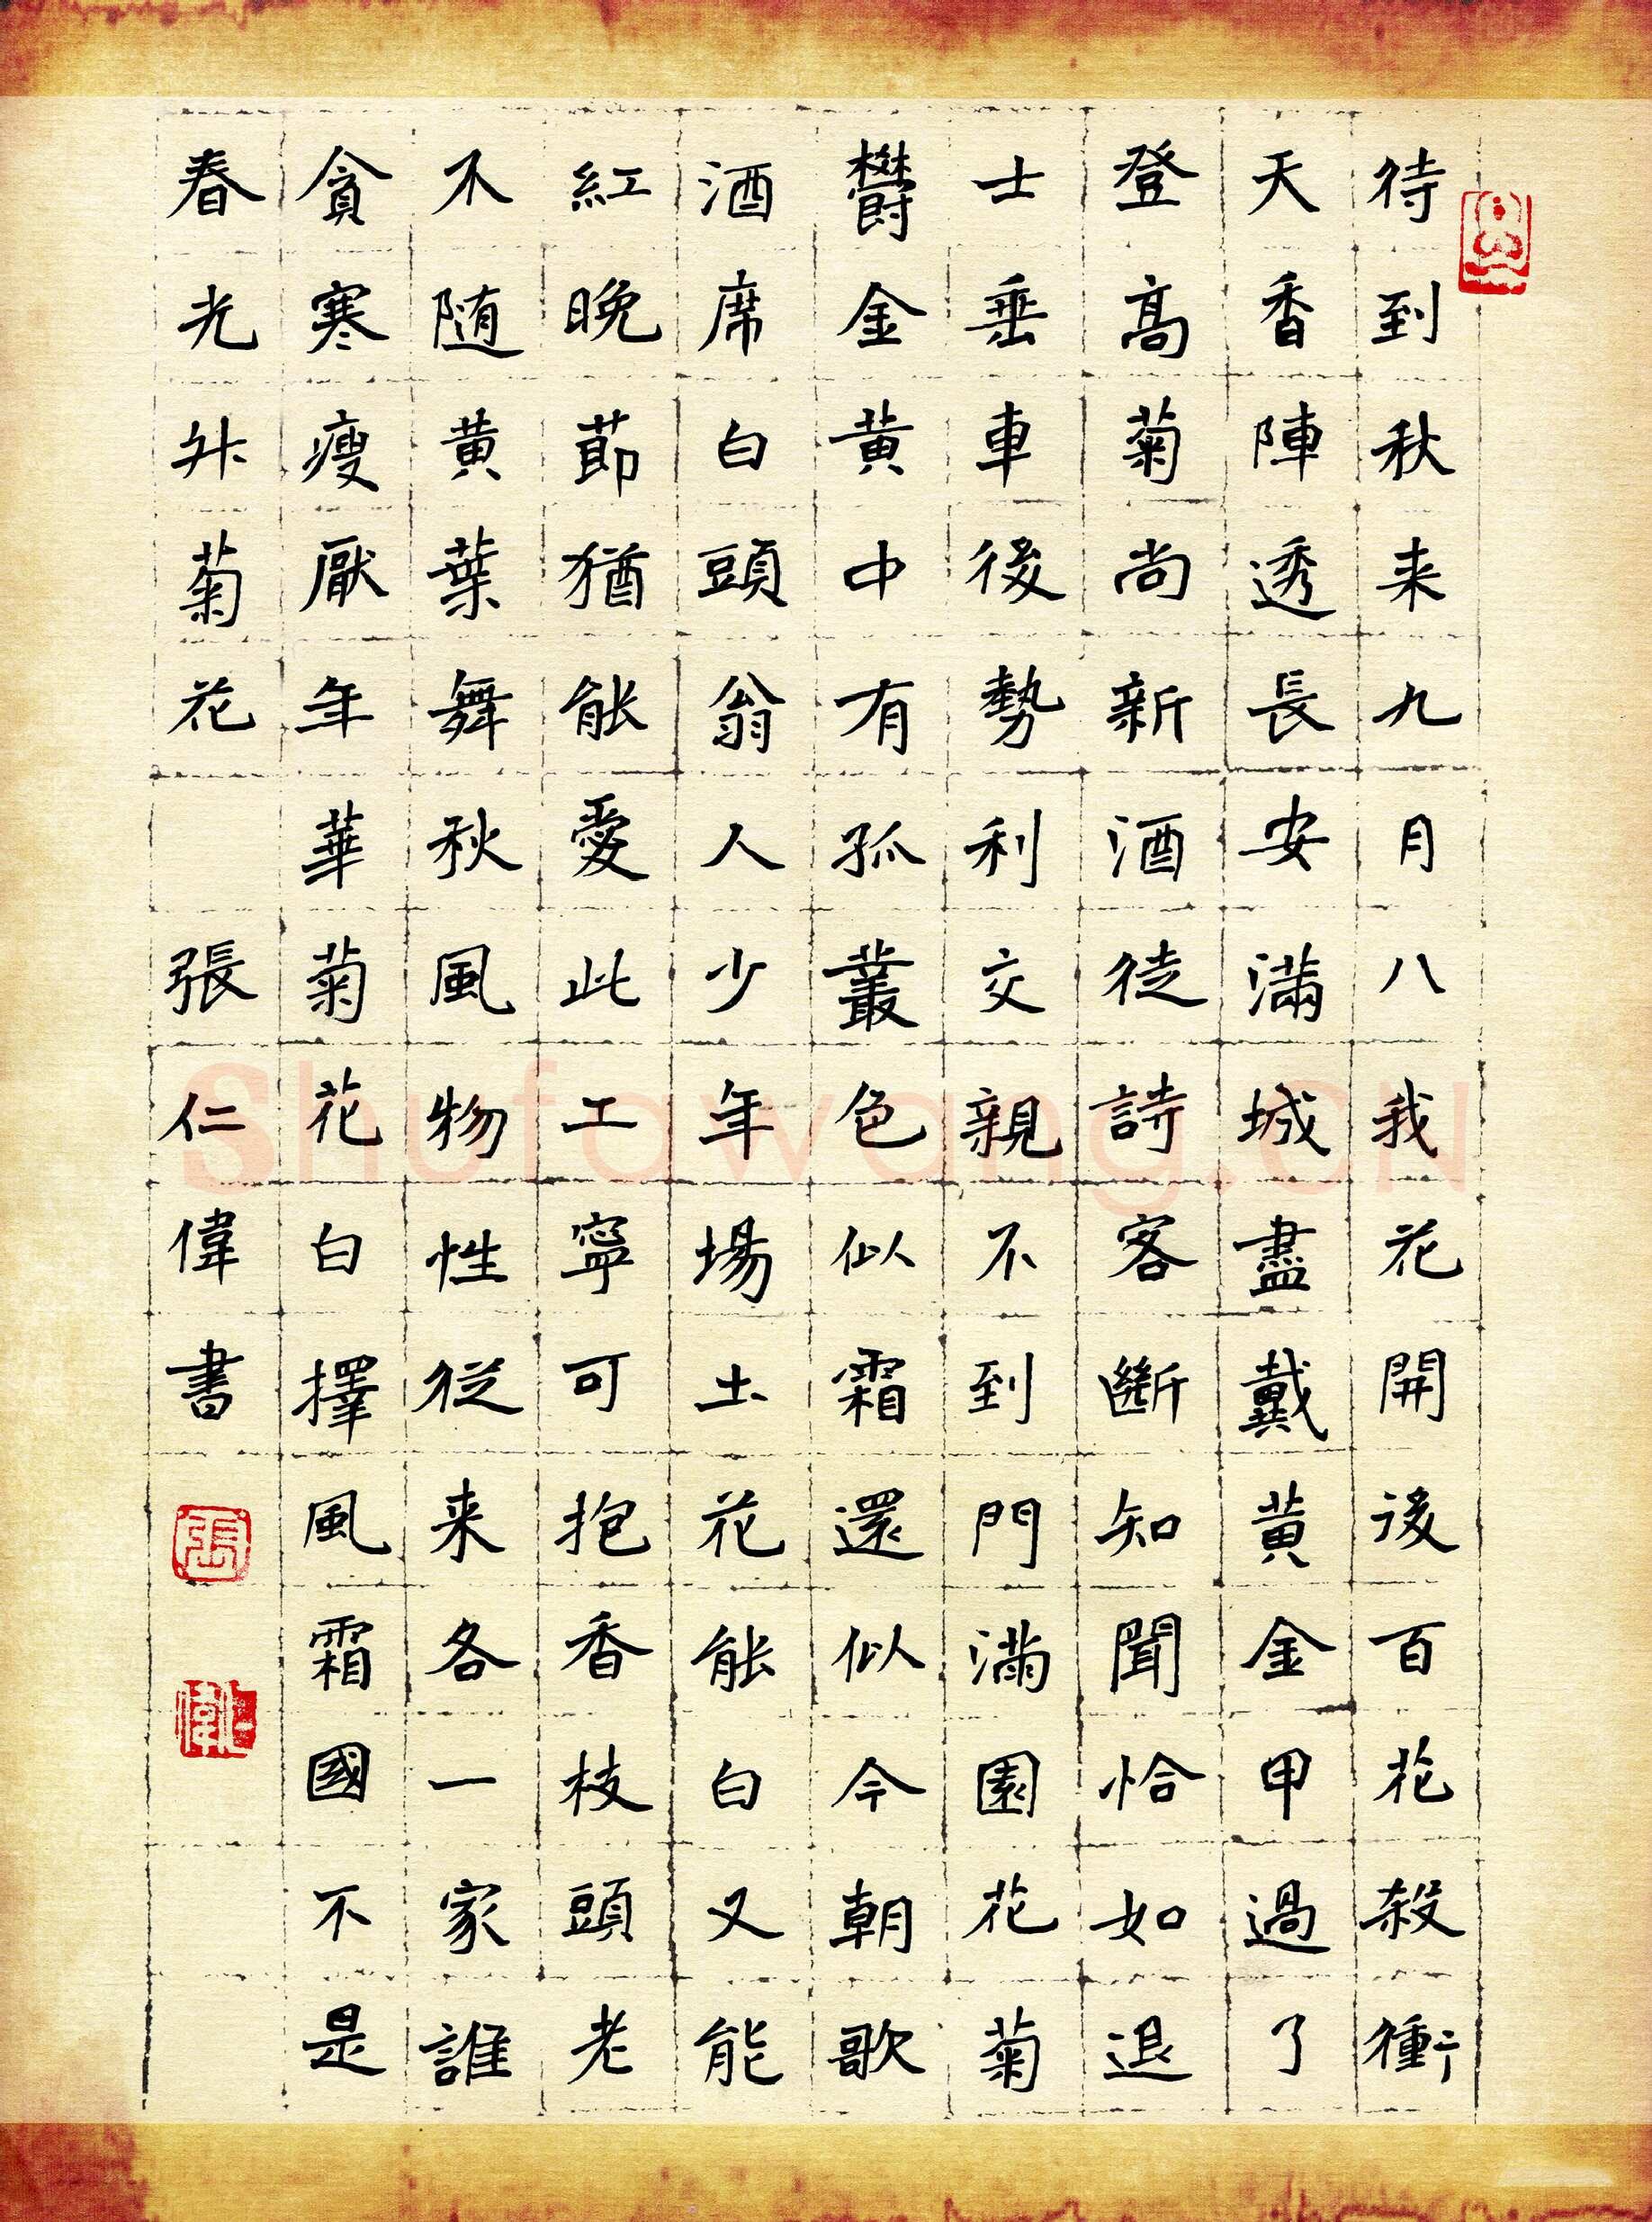 待到秋来九月八我花開後百花殺衝
天香陣透長安滿城盡戴黄金甲過了
登高菊尚新酒徒詩客斷知聞恰如退
士垂車後勢利交親不到門滿園花菊
欝金黄中有孤叢色似霜還似今朝歌
酒席白頭翁人少年場土花能白又能
紅晚莭猶能愛此工寧可抱香枝頭老
不随黄葉舞秋風物性從来各一家誰
貪寒瘦厭年華菊花白擇風霜國不是
春光外菊花 張仁偉書
Shufawang.CN